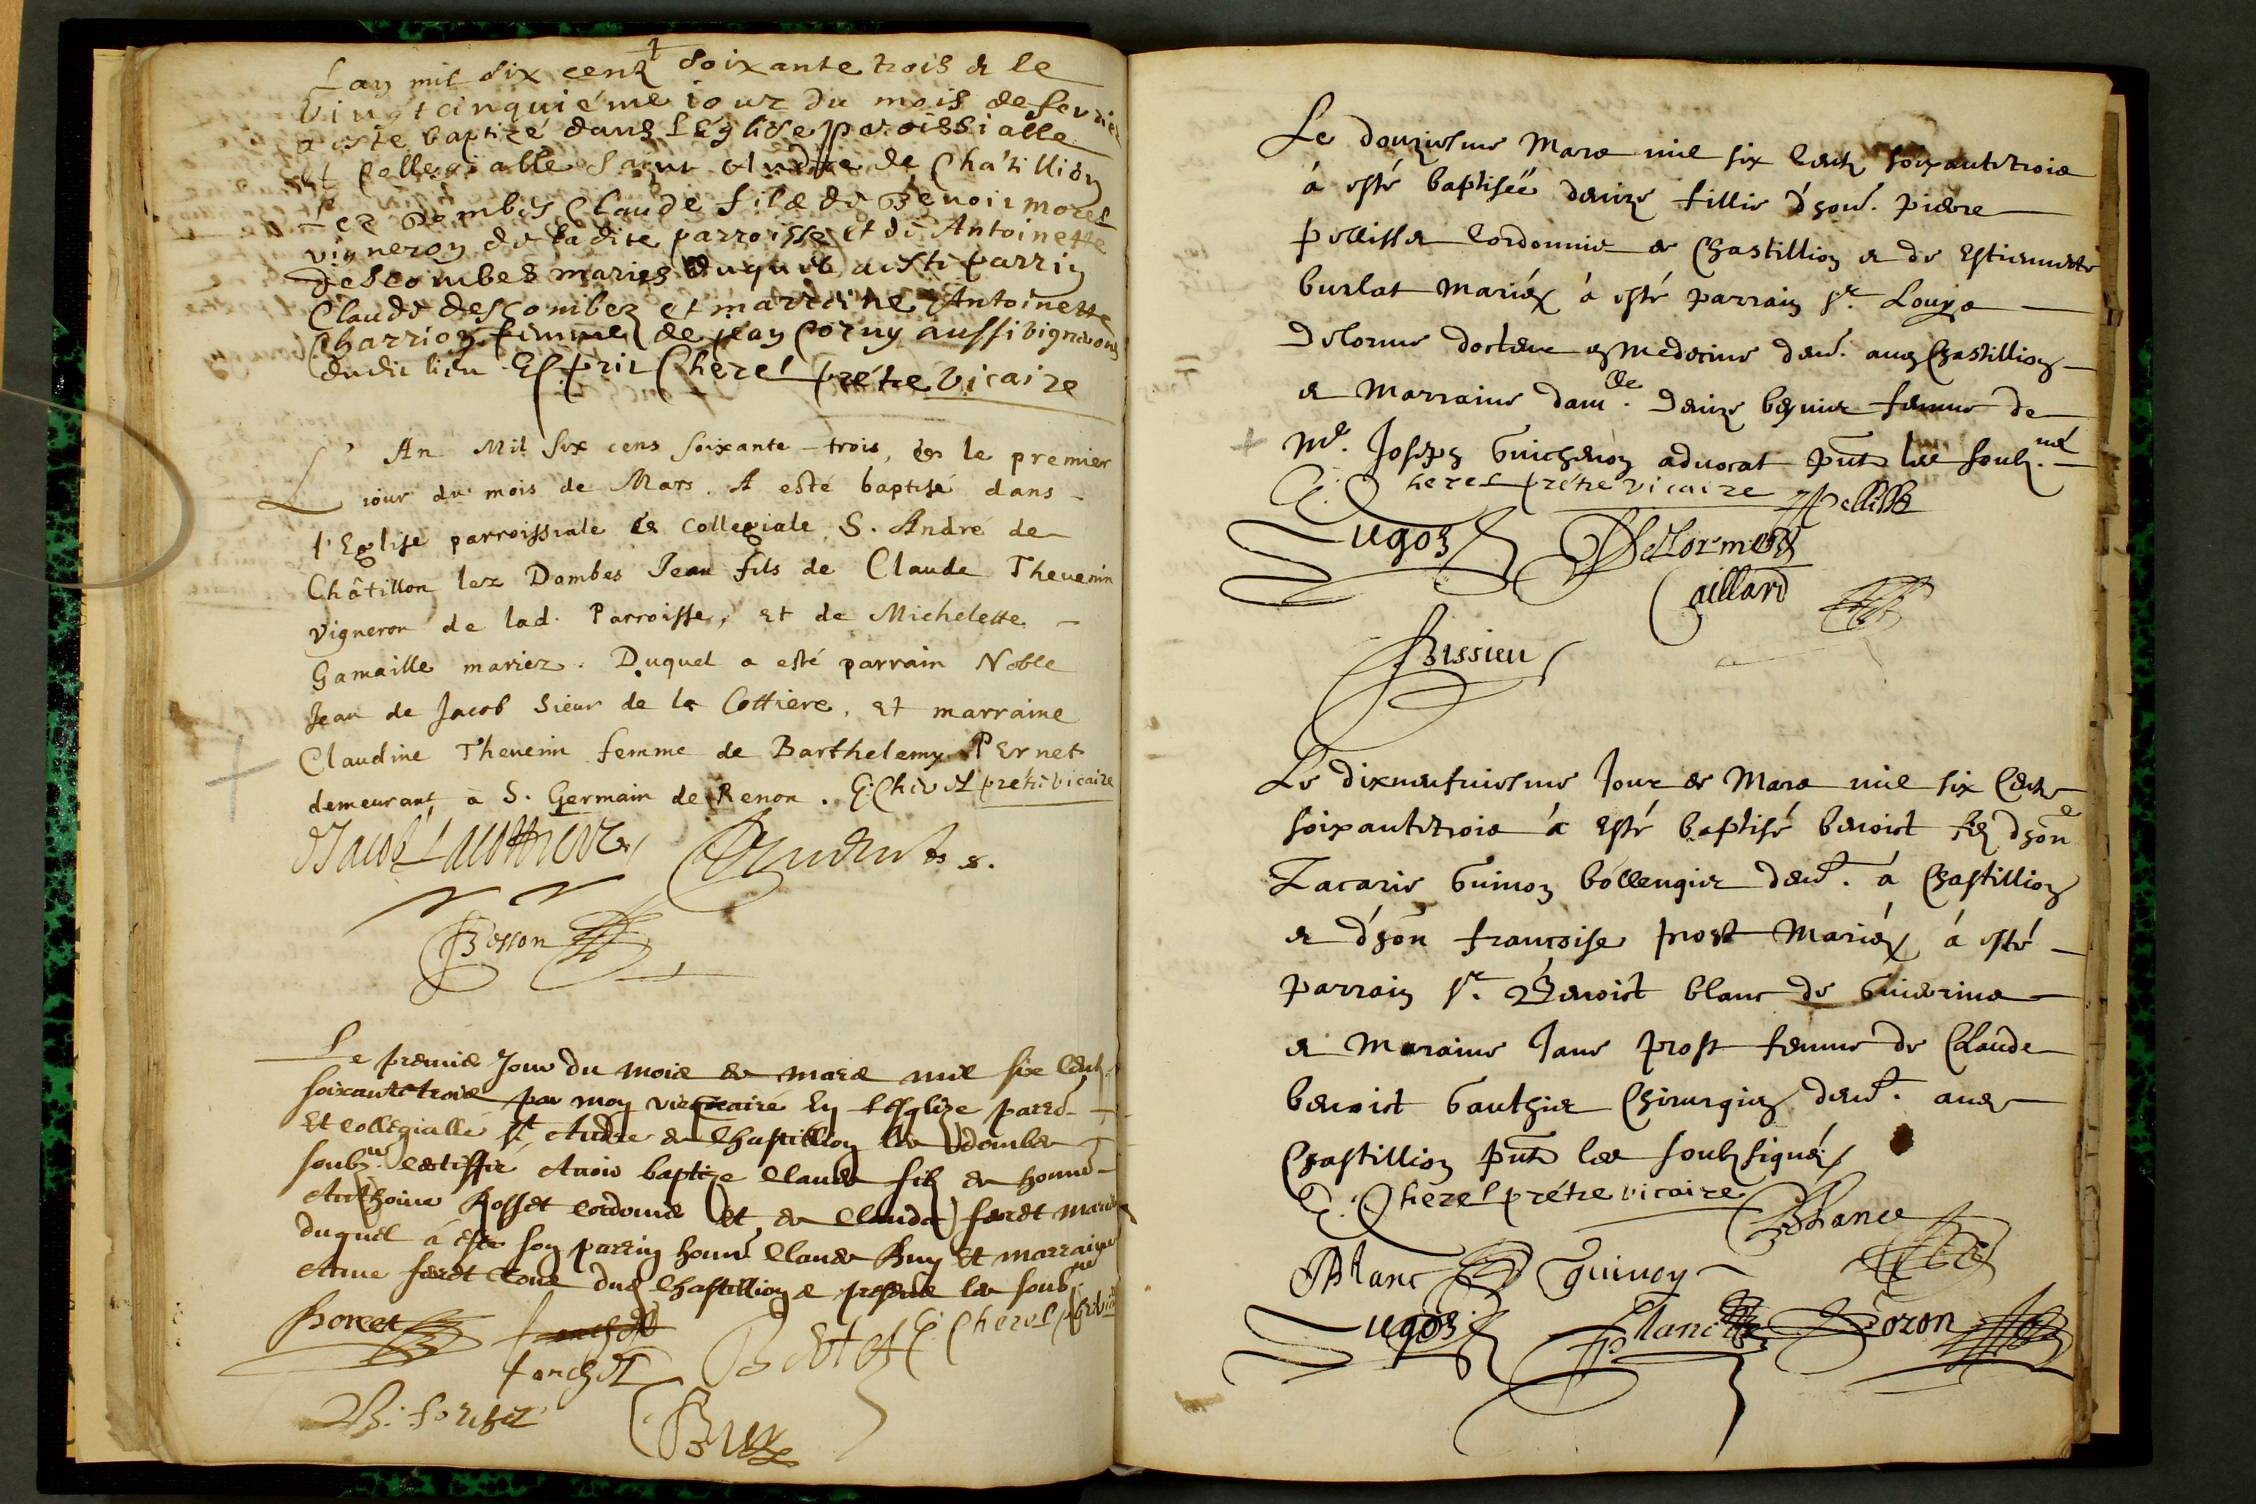 Lan mil six centz soixante trois & le
vingtcinquiéme iour du mois de fevrier
a esté baptizé dans l'Eglise paroissialle
et collegialle saint André de Châtillion
lez Dombes Claude filz de Benoit morel
vigneron de ladite parroisse et de Antoinette
descombes mariez duquel a esté parrin
Claude descombez et marreine Antoinette
Charrion femme de jean Corny aussi vigneron
dudit lieu Esprit Cherel prétre vicaire
L'An Mil six cens soixante-trois, & le premier
iour du mois de Mars. A esté baptisé dans
l'Eglise parroissiale & collegiale S. André de
Châtillon lez Dombes Jean fils de Claude Thevenin
vigneron de lad. Parroisse, et de Michelette
Gamaille mariez. Duquel a esté parrain Noble
Jean de Jacob Sieur de la Cottiere, et marraine
Claudine Thevenin femme de Barthelemy Pernet
demeurant à S. Germain de Renon. E. Cherel prétre vicaire
Besson
Le premier Jour du mois de mars mil six centz
soixante trois par moy vicaire en lesglize parro
Et collegialle st Andre de Chastillion les dombes
soubz.né certiffie Avoir baptize Claude filz de honne
Anthoine Rosset cordonnier Et de Claude feret mariez
duquel à esté son parrin honne Claude Buy Et marraine
Anne feret tous dud Chastillion & presens les soubz.nés
E Cherel
fonchet
Buy
Le douziesme Mars mil six centz soixantetrois
à esté baptiséé denize fillie d'hon. pierre
pellisser Cordonnier de Chastillion & de Estiennette
burlat mariéz à esté parrain Sr. Louys
Delorme docteur en medecine deu. aud Chastillion
& Marraine dam.lle Denize bernier femme de
Me. Joseph Guichenon advocat pnts les soubz.nés
E. Cherel prétre vicaire Pellisser
Lugos DeLorme
Gaillard
Bissieu
Le dixneufuiesme Jour de Mars mil six Centz
soixantetrois à Esté baptisé benoict filz d'hone
Zacarie Guinon bollengier deu. à Chastillion
& d'hon francoise prost Mariéz à esté
parrain Sr. Benoict blanc de
& Maraine Jane prost femme de Claude
benoict Gauthier Chirurgien deu. aud
Chastillion pnts les soubzsignéz
E. Cherel prétre vicaire Blance
Blanc Guinon
Lugos Blanc Boron